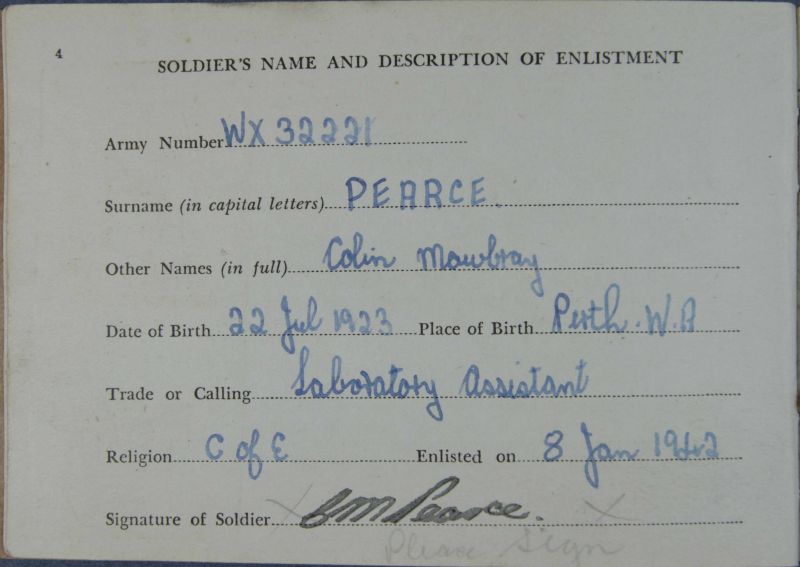 4
SOLDIER'S NAME AND DESCRIPTION OF ENLISTMENT
Army Number WX 32221
Surname (in capital letters) PEARCE.
Other Names (in full) Colin Mowbray
Date of Birth 22 Jul 1923 Place of Birth Perth. W.A
Trade or Calling Laboratory Assistant
Religion C of E Enlisted on 8 Jan 1942
Signature of Soldier X CM Pearce. X
Please Sign